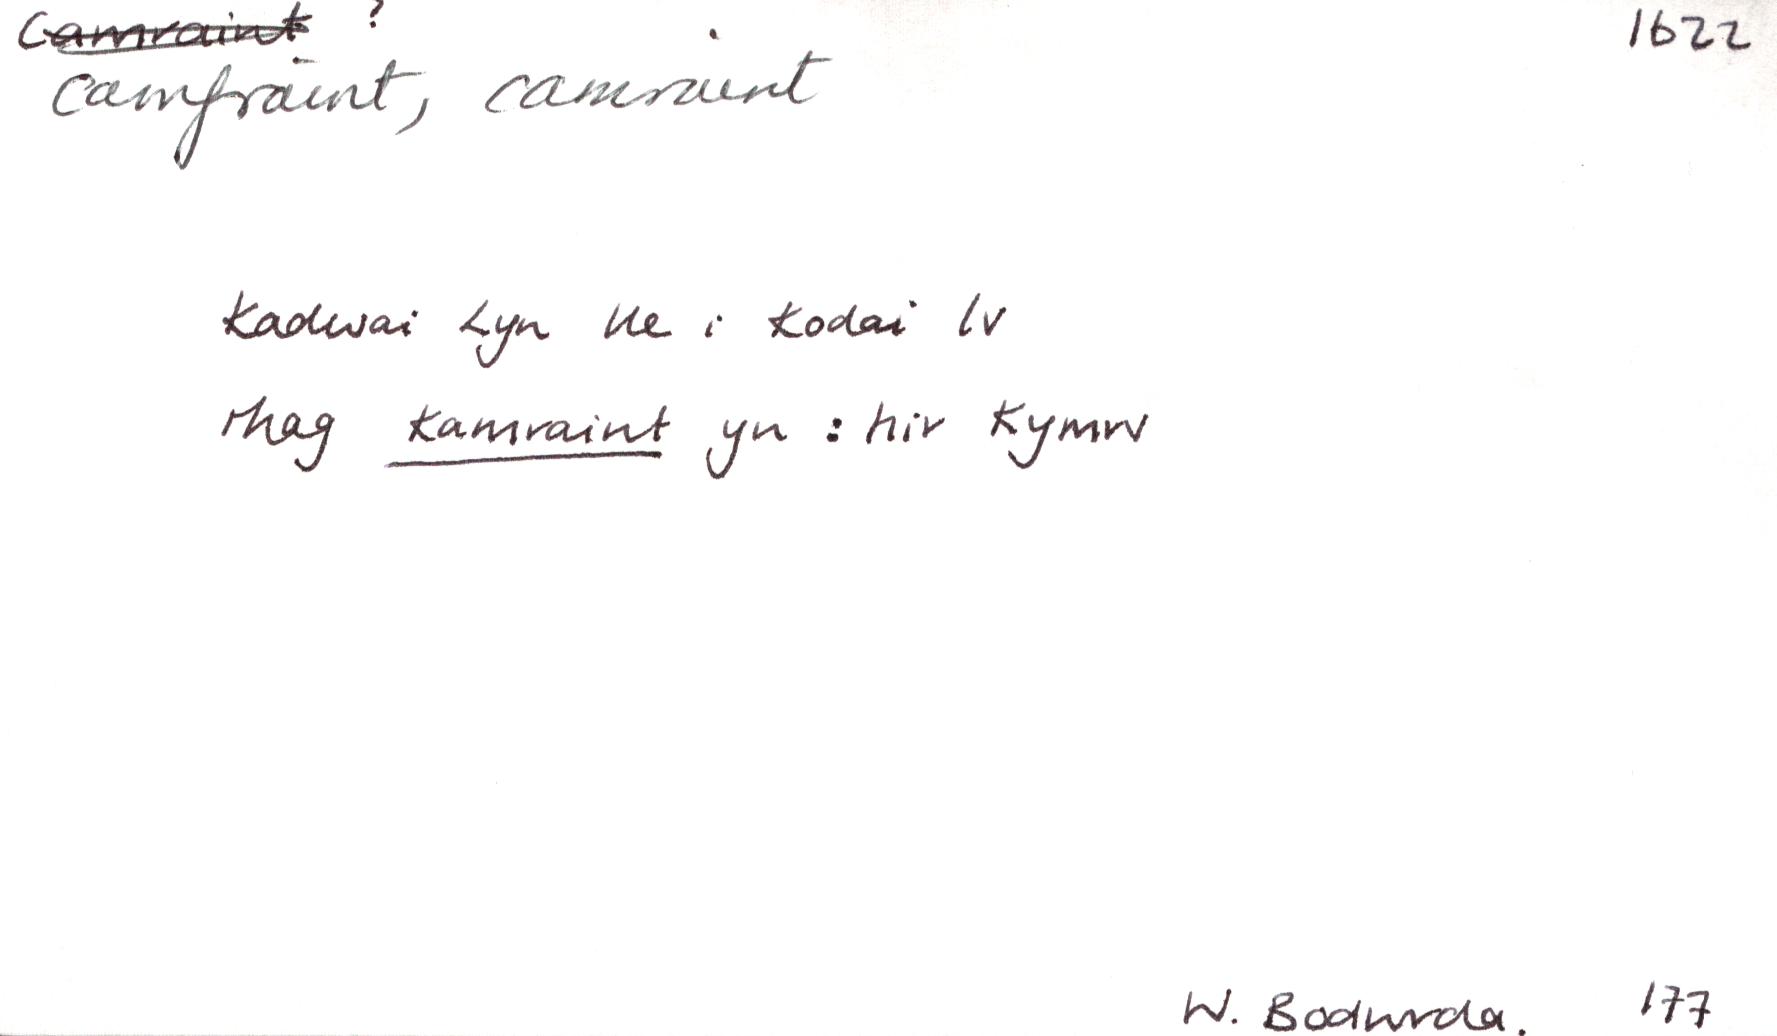 Camraint ? 1622
camfraint, camraint
Kadwai Lyn lle i kodai lv
rhag kamraint yn : hir Kymrv
W. Bodwrda. 177